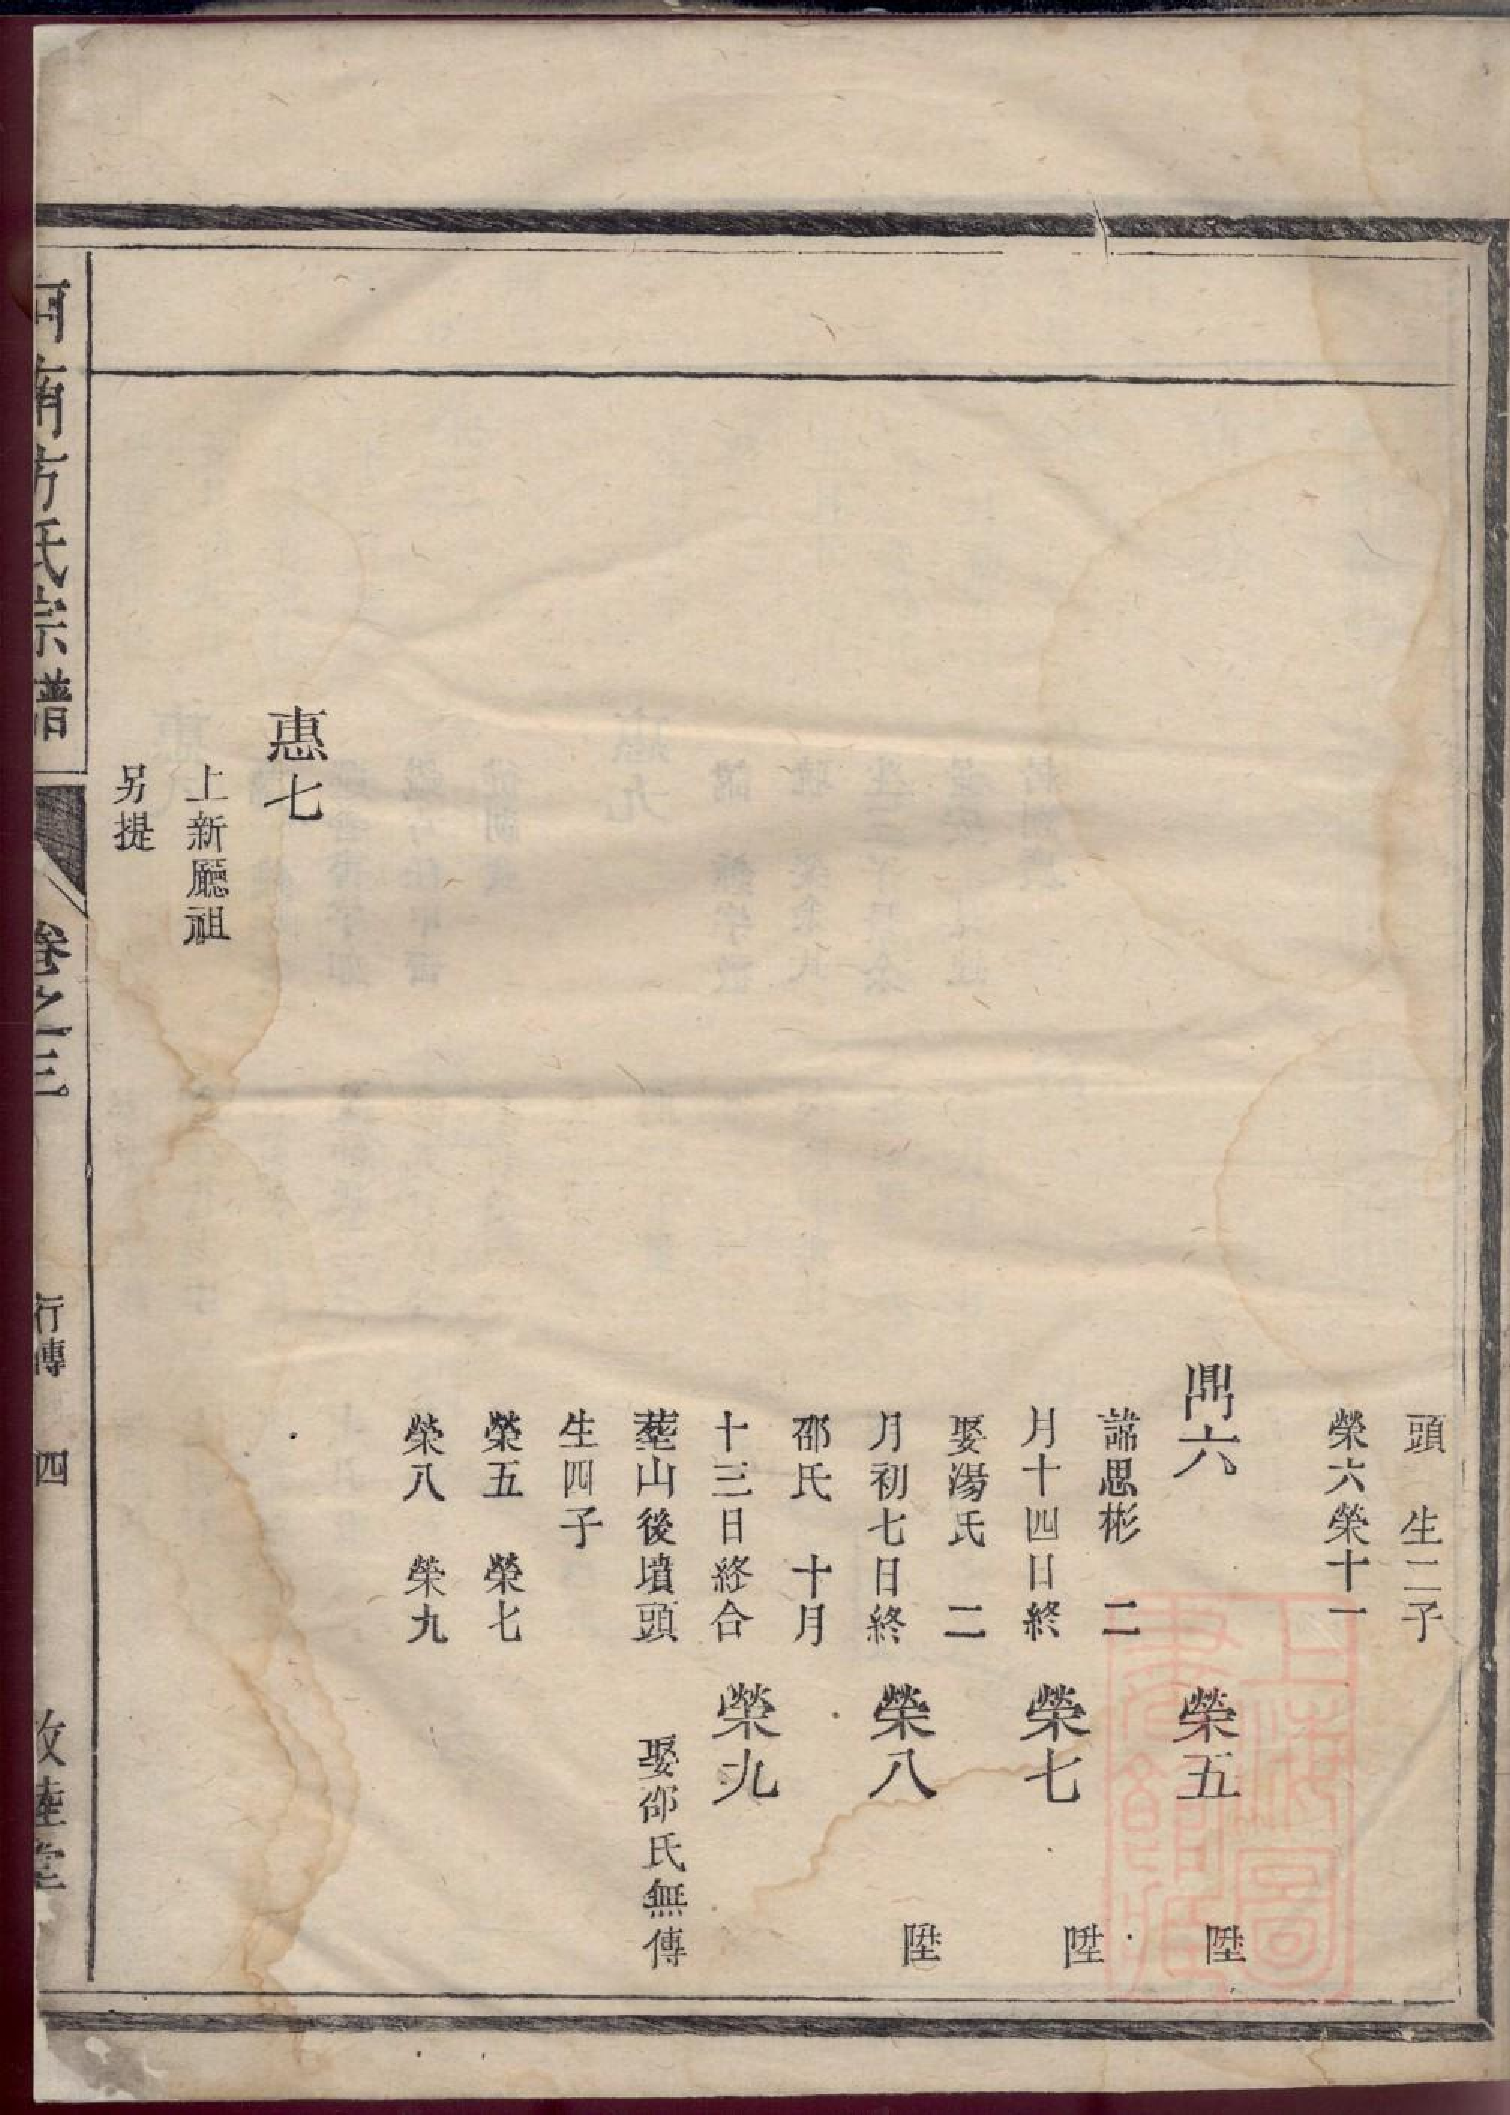 頭　生二子
榮六榮十一
鼎六
諱思彬　二
月十四日終
娶湯氏　二
月初七日終
邵氏　十月
十三日終合
塟山後墳頭
生四子
榮五　榮七
榮八　榮九
榮五　陞
榮七　陞
榮八　陞
榮九
娶邵氏無傳
惠七
上新廳祖
另提
河南方氏宗譜
卷之三
行傳　四
敦睦堂
上海圖書館藏